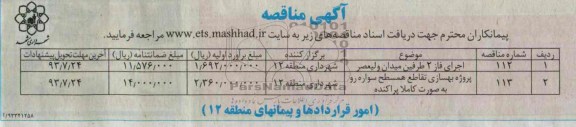 آگهی مناقصه
پیمانکاران محترم جهت دریافت اسناد مناقصه‌های زیر به سایت www.ets.mashhad.ir مراجعه فرمایید.
ردیف شماره مناقصه موضوع برگزار کننده مبلغ برآورد اولیه (ریال) مبلغ ضمانتنامه (ریال) آخرین مهلت تحویل پیشنهادات
۱ ۱۱۲ اجرای فاز ۲ طرفین میدان ولیعصر شهرداری منطقه ۱۲ ۱,۶۹۲,۰۰۰,۰۰۰ ۱۱,۵۷۶,۰۰۰ ۹۳/۷/۲۴
۲ ۱۱۳ پروژه بهسازی تقاطع همسطح سواره رو به صورت کاملا پراکنده منطقه ۱۲ ۲,۳۶۰,۰۰۰,۰۰۰ ۱۴,۰۰۰,۰۰۰ ۹۳/۷/۲۴
(امور قراردادها و پیمانهای منطقه ۱۲)